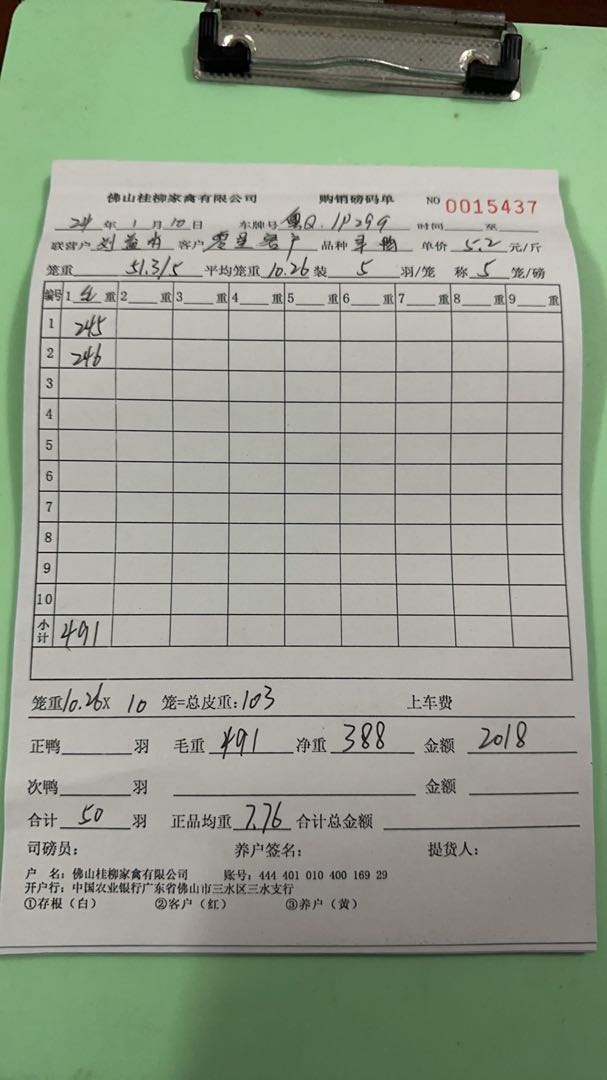 佛山桂柳家禽有限公司 购销磅码单 NO 0015437
24 年 1 月 10 日 车牌号 粤Q.1P299 时间 至
联营户 刘益明 客户 零星客户 品种 单价 5.2 元/斤
笼重 51.3/5 平均笼重 10.26 装 5 羽/笼 称 5 笼/磅
编号 1 重 2 重 3 重 4 重 5 重 6 重 7 重 8 重 9 重
1 245
2 246
3
4
5
6
7
8
9
10
小计 491
笼重 10.26 X 10 笼=总皮重: 103 上车费
正鸭 羽 毛重 491 净重 388 金额 2018
次鸭 羽 金额
合计 50 羽 正品均重 7.76 合计总金额
司磅员: 养户签名: 提货人:
户 名: 佛山桂柳家禽有限公司 账号: 444 401 010 400 169 29
开户行: 中国农业银行广东省佛山市三水区三水支行
①存根(白) ②客户(红) ③养户(黄)